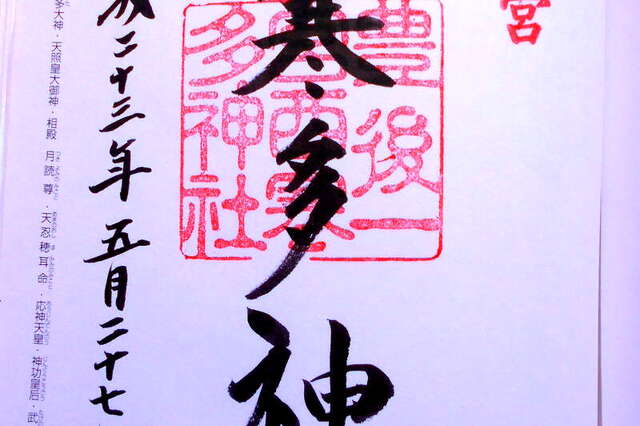 宮
豊後一
宮西寒
多神社
寒多神
成二十三年五月二十七
多大神・天照皇大御神・相殿 月読尊・天忍穂耳命・応神天皇・神功皇后・武